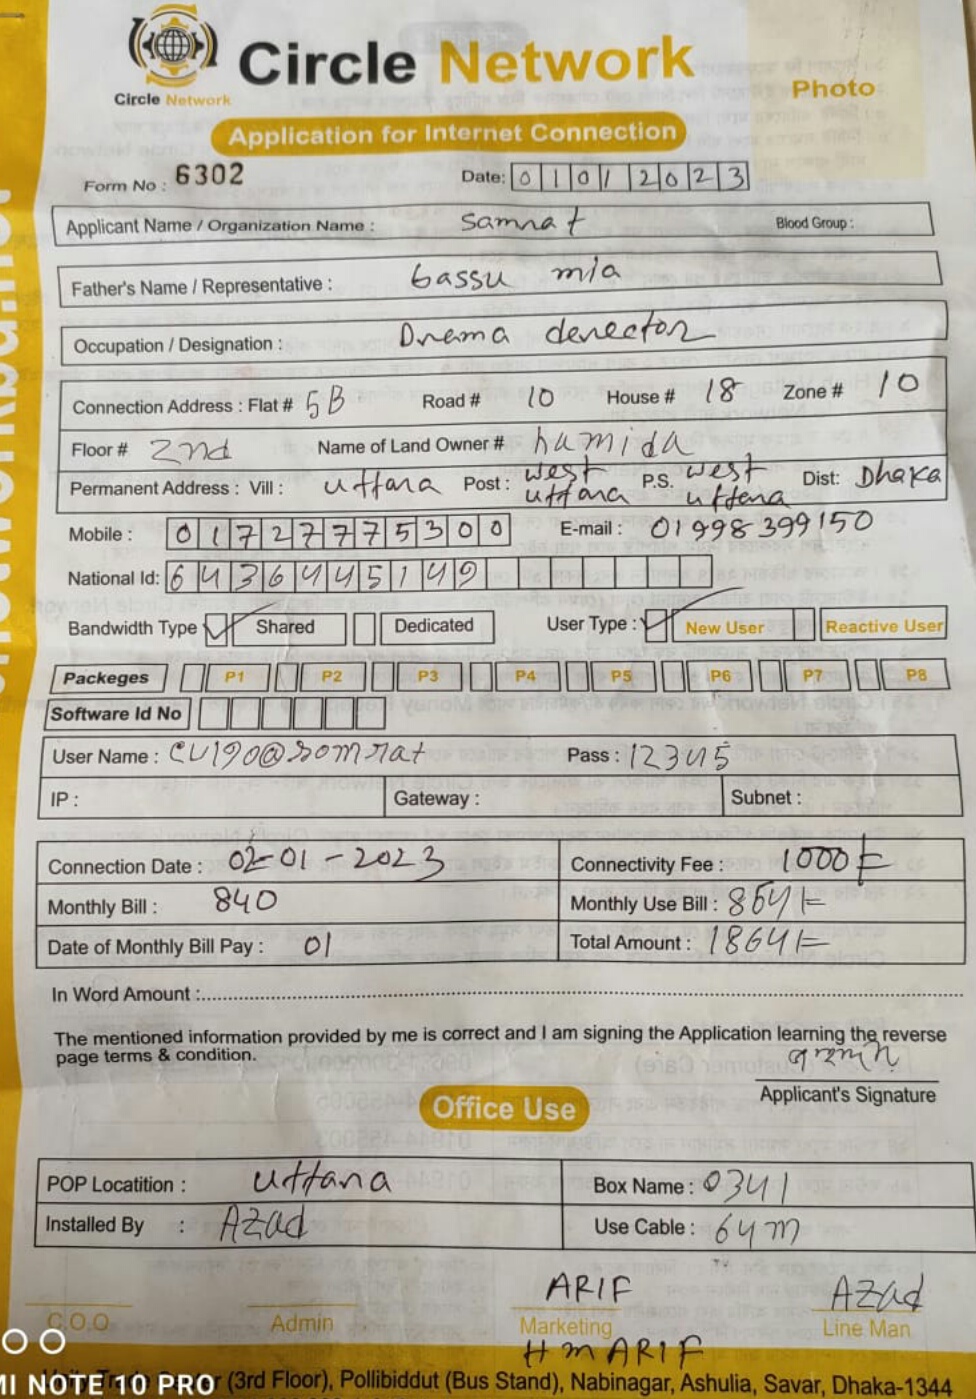 Circle Network
Circle Network
Photo
Application for Internet Connection
Form No : 6302
Date: 01012023
Applicant Name / Organization Name : Samrat Blood Group :
Father's Name / Representative : Gassu mia
Occupation / Designation : Drema derector
Connection Address : Flat # 5B Road # 10 House # 18 Zone # 10
Floor # 2nd Name of Land Owner # hamida
Permanent Address : Vill : uttara Post : west uttara P.S. west uttara Dist: Dhaka
Mobile : 01727775300 E-mail : 01998399150
National Id: 6436445149
Bandwidth Type Shared Dedicated User Type : New User Reactive User
Packeges P1 P2 P3 P4 P5 P6 P7 P8
Software Id No
User Name : CU190@somrat Pass : 12345
IP : Gateway : Subnet :
Connection Date : 02-01-2023 Connectivity Fee : 1000/=
Monthly Bill : 840 Monthly Use Bill : 864/=
Date of Monthly Bill Pay : 01 Total Amount : 1864/=
In Word Amount :
The mentioned information provided by me is correct and I am signing the Application learning the reverse
page terms & condition.
Applicant's Signature
Office Use
POP Locatition : uttara Box Name : 0341
Installed By : Azad Use Cable : 64m
ARIF Azad
C.O.O Admin Marketing Line Man
H m ARIF
(3rd Floor), Pollibiddut (Bus Stand), Nabinagar, Ashulia, Savar, Dhaka-1344
MI NOTE 10 PRO